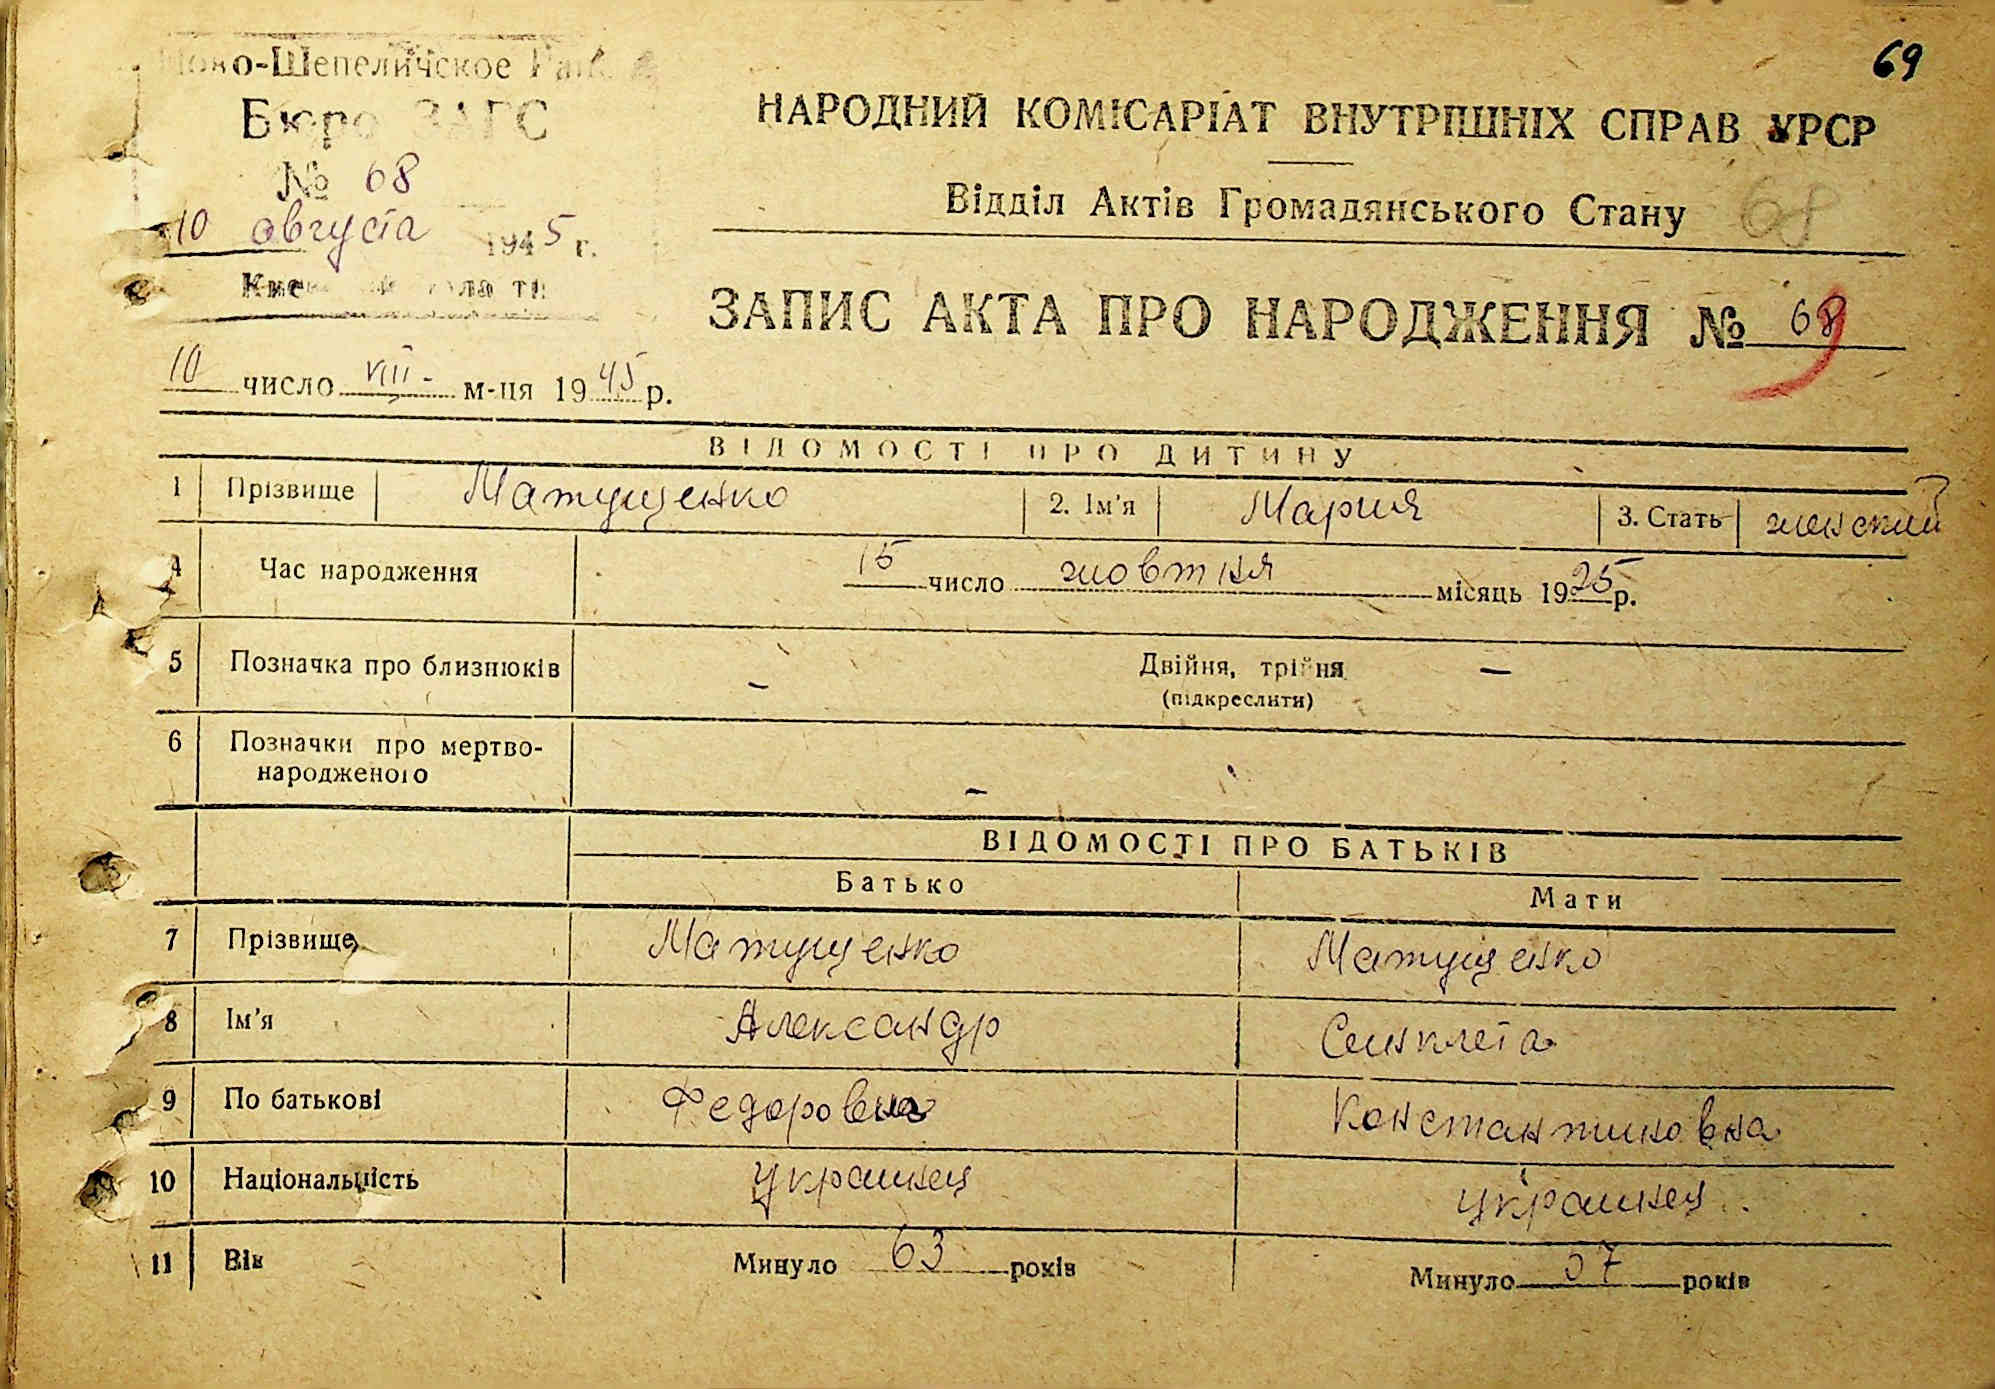 69
Ново-Шепеличское
Бюро ЗАГС
№ 68
10 августа 1945 г.
НАРОДНИЙ КОМІСАРІАТ ВНУТРІШНІХ СПРАВ УРСР
Відділ Актів Громадянського Стану 68
ЗАПИС АКТА ПРО НАРОДЖЕННЯ № 68
10 число VIII- м-ця 1945 р.
ВІДОМОСТІ ПРО ДИТИНУ
1 Прізвище Матущенко 2. Ім'я Мария 3. Стать женский
4 Час народження 15 число жовтня місяць 1925 р.
5 Позначка про близнюків – Двійня, трійня –
(підкреслити)
6 Позначки про мертво-
народженого –
ВІДОМОСТІ ПРО БАТЬКІВ
Батько Мати
7 Прізвище Матущенко Матущенко
8 Ім'я Александр Синклета
9 По батькові Федоровна Константиновна
10 Національність украинец украинец
11 Вік Минуло 63 років Минуло 57 років